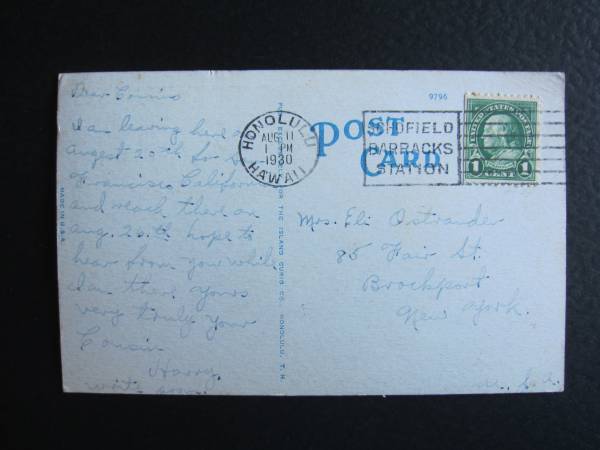 Dear Cousin
I am leaving here on
August 20th for San
Francisco, California
and reach there on
Aug. 26th hope to
hear from you while
I am there yours
very truly your
Cousin
Harry.
write soon
MADE IN U.S.A.
FOR THE ISLAND CURIO CO., HONOLULU, T. H.
9796
POST
CARD
HONOLULU
AUG 11
1 PM
1930
HAWAII
SCHOFIELD
BARRACKS
STATION
UNITED STATES POSTAGE
1 CENT 1
Mrs. Eli Ostrander
85 Fair St.
Brockport
New York.